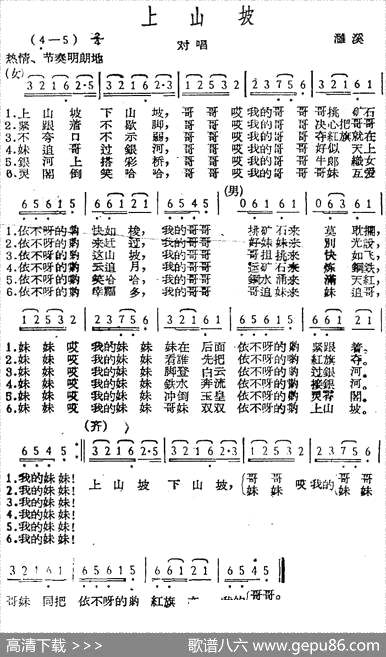 上山坡
(4—5)
对唱
濉溪
热情、节奏明朗地
(女)
3212162·3 3212162·5 1253 2375 3216 1211
1.上山坡 下山坡,哥哥 哎我的哥哥挑矿石
2.紧跟着 不歇脚,哥哥 哎我的哥哥决心把旗
3.不夸口 不示弱,哥哥 哎我的哥哥夺紅旗就在
4.妹追哥 过銀河,哥哥 哎我的哥哥好似天上
5.銀河上 搭彩桥,哥哥 哎我的哥哥牛郎織女
6.閣倒 笑哈哈,哥哥 哎我的哥哥哥妹互爱
(男)
65615 65615 6165 0661 0661 6121
1.依不呀的哟 快如梭,我的哥哥 矿石来 莫敢攔,
2.依不呀的哟 来赶过,我的哥哥 好妹妹来 別光說,
3.依不呀的哟 这山坡,我的哥哥 哥担挑来 快如飞,
4.依不呀的哟 云追月,我的哥哥 运矿石来 炼鋼鉄,
5.依不呀的哟 笑哈哈,我的哥哥 鋼水涌来 滿天紅,
6.依不呀的哟 幸福多,我的哥哥 哥追妹来 妹追哥,
1253 2375 3216 1211 65615 661 21
1.妹妹哎 我的妹妹妹在后面 依不呀的哟 紧跟着,
2.妹妹哎 我的妹妹看誰先把 依不呀的哟 紅旗夺。
3.妹妹哎 我的妹妹脚登白云 依不呀的哟 过銀河。
4.妹妹哎 我的妹妹鉄水奔流 依不呀的哟 接銀河。
5.妹妹哎 我的妹妹冲倒玉皇 依不呀的哟 閣。
6.妹妹哎 我的妹妹哥妹双双 依不呀的哟 上山坡。
(齐)
6545 5 3212162·5 3212162·3 1253 2375
1.我的妹妹! 上山坡 下山坡,哥哥 哎我的哥哥
2.我的妹妹! 妹妹 妹妹
3.我的妹妹!
4.我的妹妹!
5.我的妹妹!
6.我的妹妹!
3216 1 61 65615 66121 6165 5
哥妹 同把 依不呀的哟 紅旗 哥哥。
妹妹。
高清下载 >>>
歌谱八六 www.gepu86.com